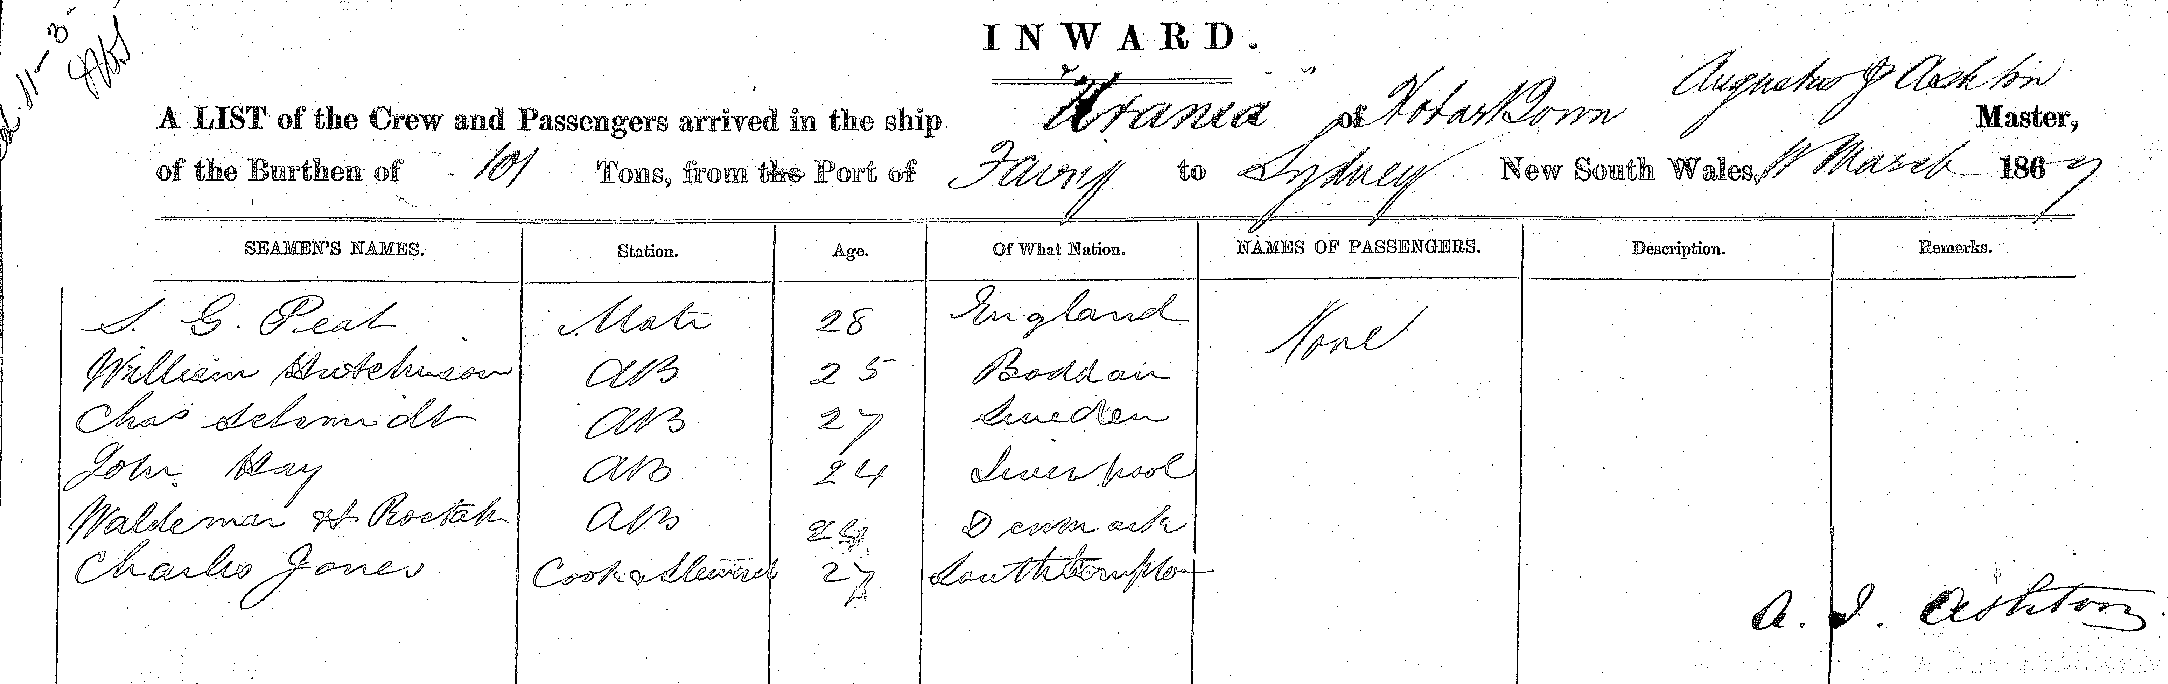 INWARD.
A LIST of the Crew and Passengers arrived in the ship "Urania" of Hobart Town Augustus J Ashton Master,
of the Burthen of 101 Tons, from the Port of to Sydney New South Wales, 11 March 1867
SEAMEN'S NAMES. Station. Age. Of What Nation. NAMES OF PASSENGERS. Description. Remarks.
S. G. Peat Mate 28 England None
William Hutchinson AB 25 Boddam
Chas Schmidt AB 27 Sweden
John Hay AB 24 Liverpool
Waldemar AB Denmark
Charles Jones Cook & Steward 27 Southhampton
A. J. Ashton